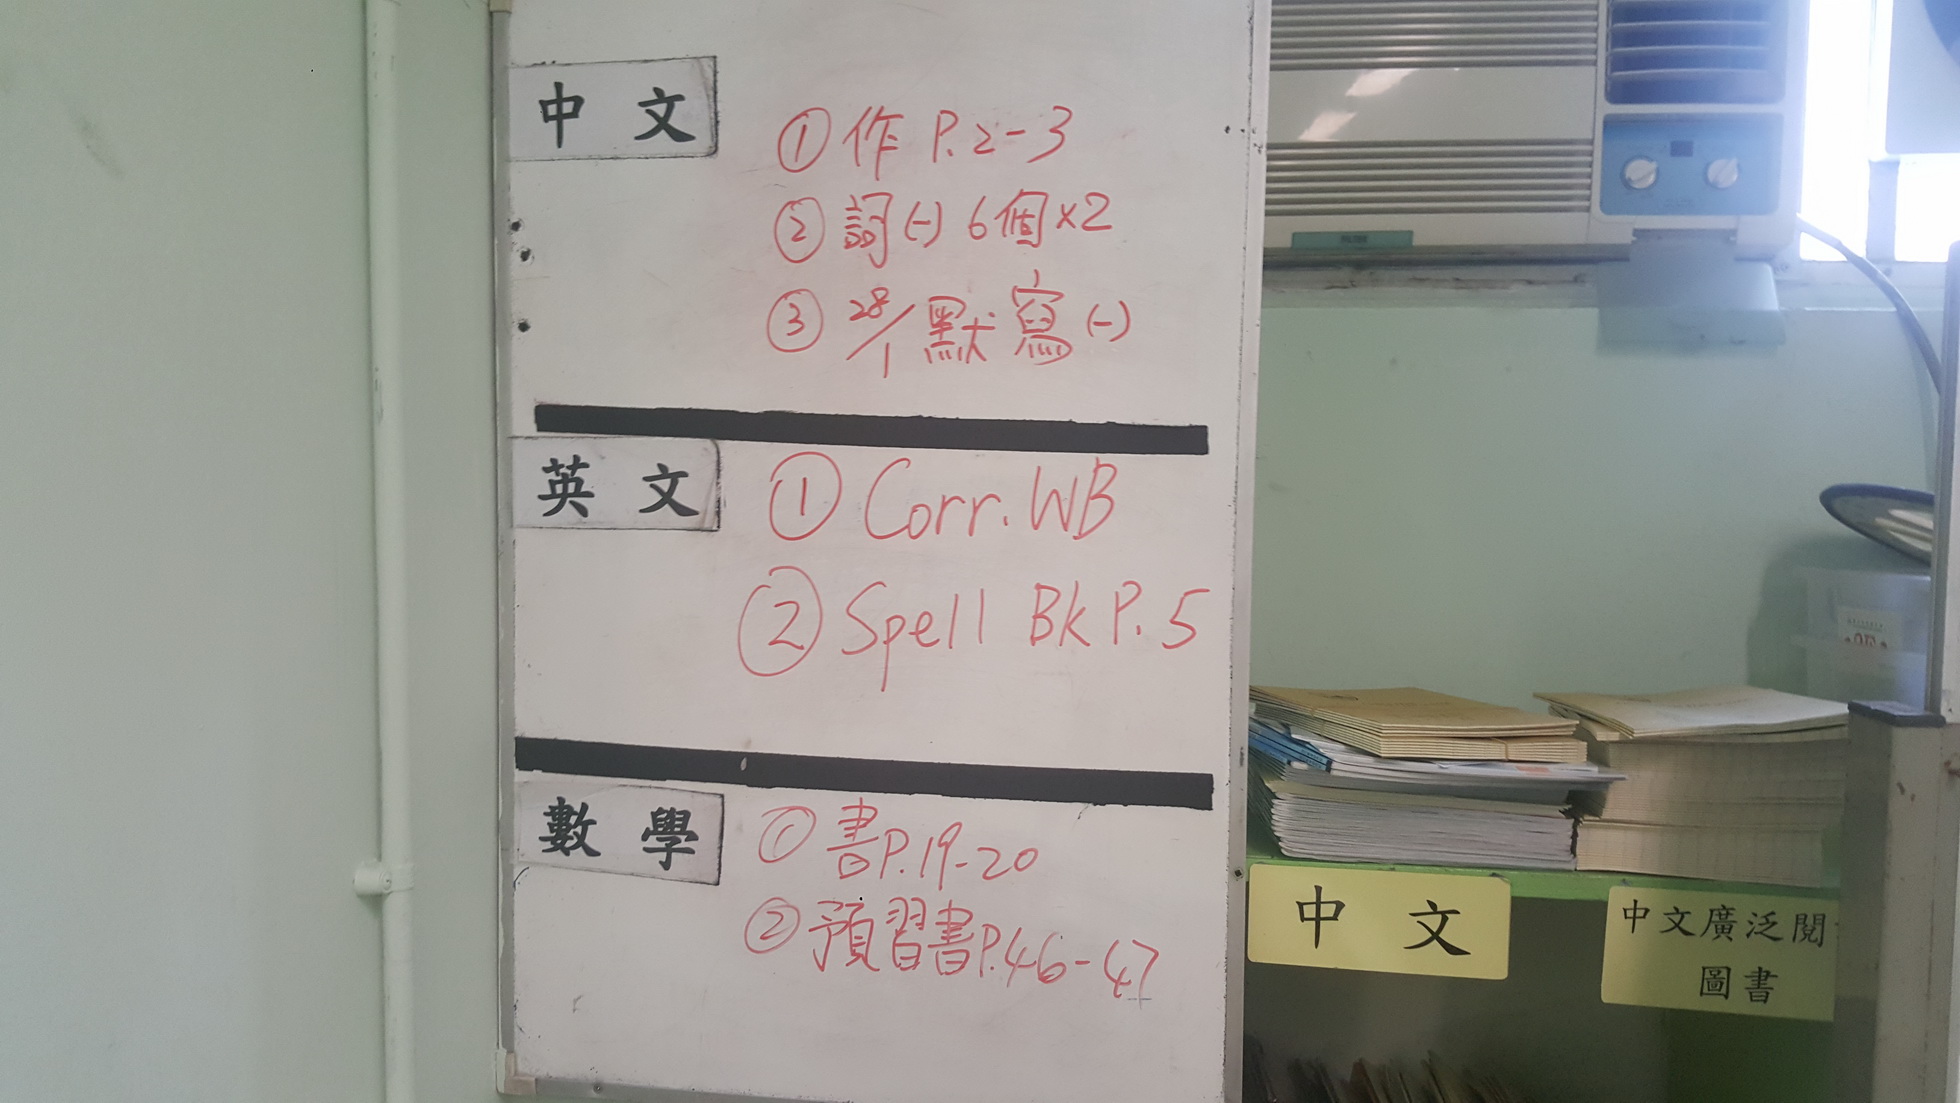 中文
① 作 P.2-3
② 詞(一) 6個×2
③ 28/1 默寫(一)
英文
① Corr. WB
② Spell Bk P.5
數學
① 書P.19-20
② 預習書P.46-47
中文
中文廣泛閱
圖書